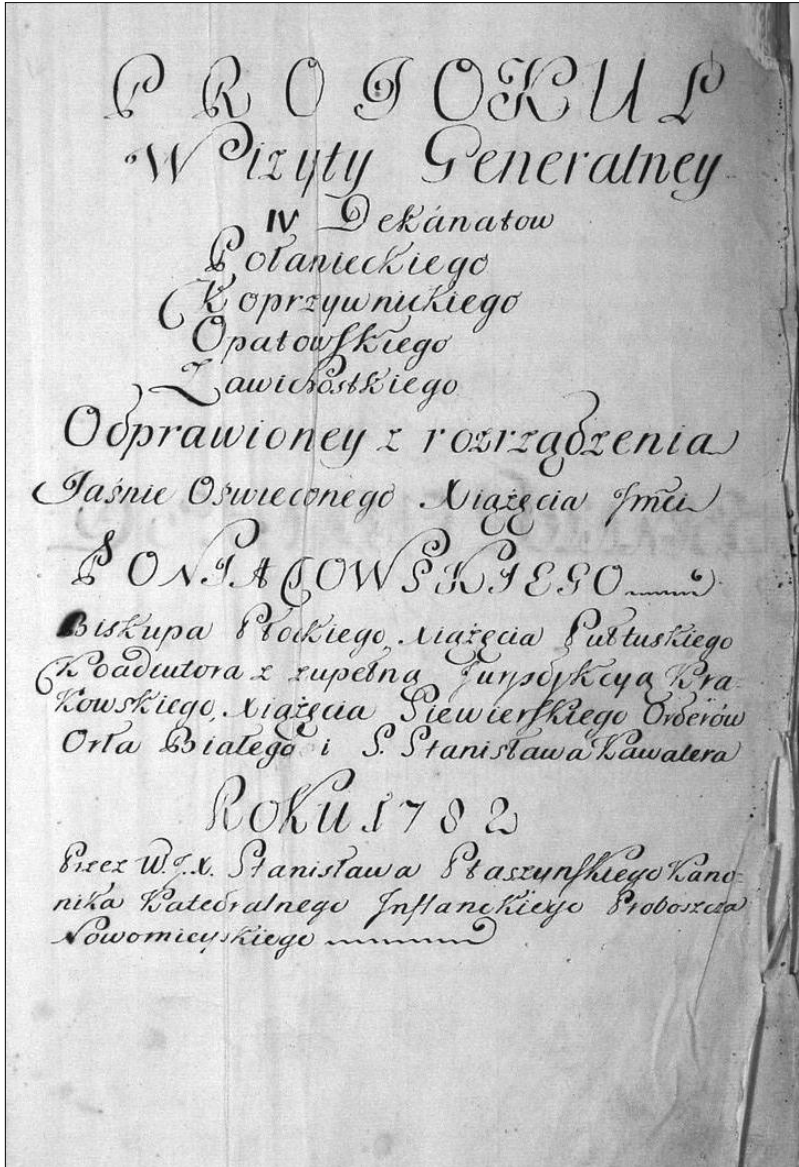 PROTOKUŁ
Wizyty Generalney
IV Dekánatow
Połanieckiego
Koprzywnickiego
Opatowskiego
Zawichostkiego
Odprawioney z rozrządzenia
Jaśnie Oswieconego Xiążęcia Jmci
PONIATOWSKIEGO
Biskupa Płockiego, Xiążęcia Pułtuskiego
Koadiutora z zupełną Jurysdykcyą Kra-
kowskiego, Xiążęcia Siewierskiego Orderów
Orła Białego i S. Stanisława Kawalera
Roku 1782
Przez W.J.X. Stanisława Ptaszynskiego Kano-
nika Katedralnego Inflanckiego Proboszcza
Nowomieyskiego